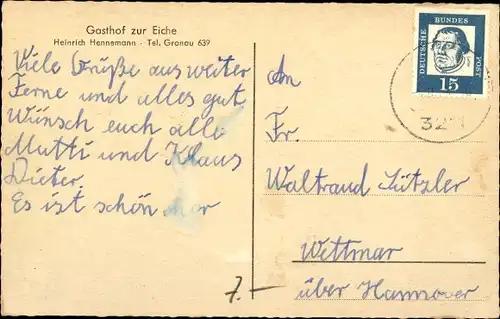 Gasthof zur Eiche
Heinrich Hennemann - Tel. Gronau 639
Viele Grüße aus weiter
Ferne und alles gut
Wünsch euch alle
Mutti und Klaus
Dieter.
Es ist schön hier
DEUTSCHE BUNDES POST
15
321
An
Fr.
Waltraud Lützler
Wettmar
über Hannover
7.-